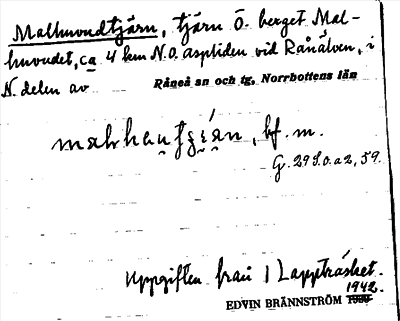 Malhuvudtjärn, tjärn Ö. berget Mal-
huvudet, ca 4 km N.O. Aspliden vid Råneälven, i
N. delen av Råneå sn och tg, Norrbottens län
bf. m.
G. 29 S.o.a 2, 59.
Uppgiften från 1 Lappträsket.
1942.
EDVIN BRÄNNSTRÖM 1930